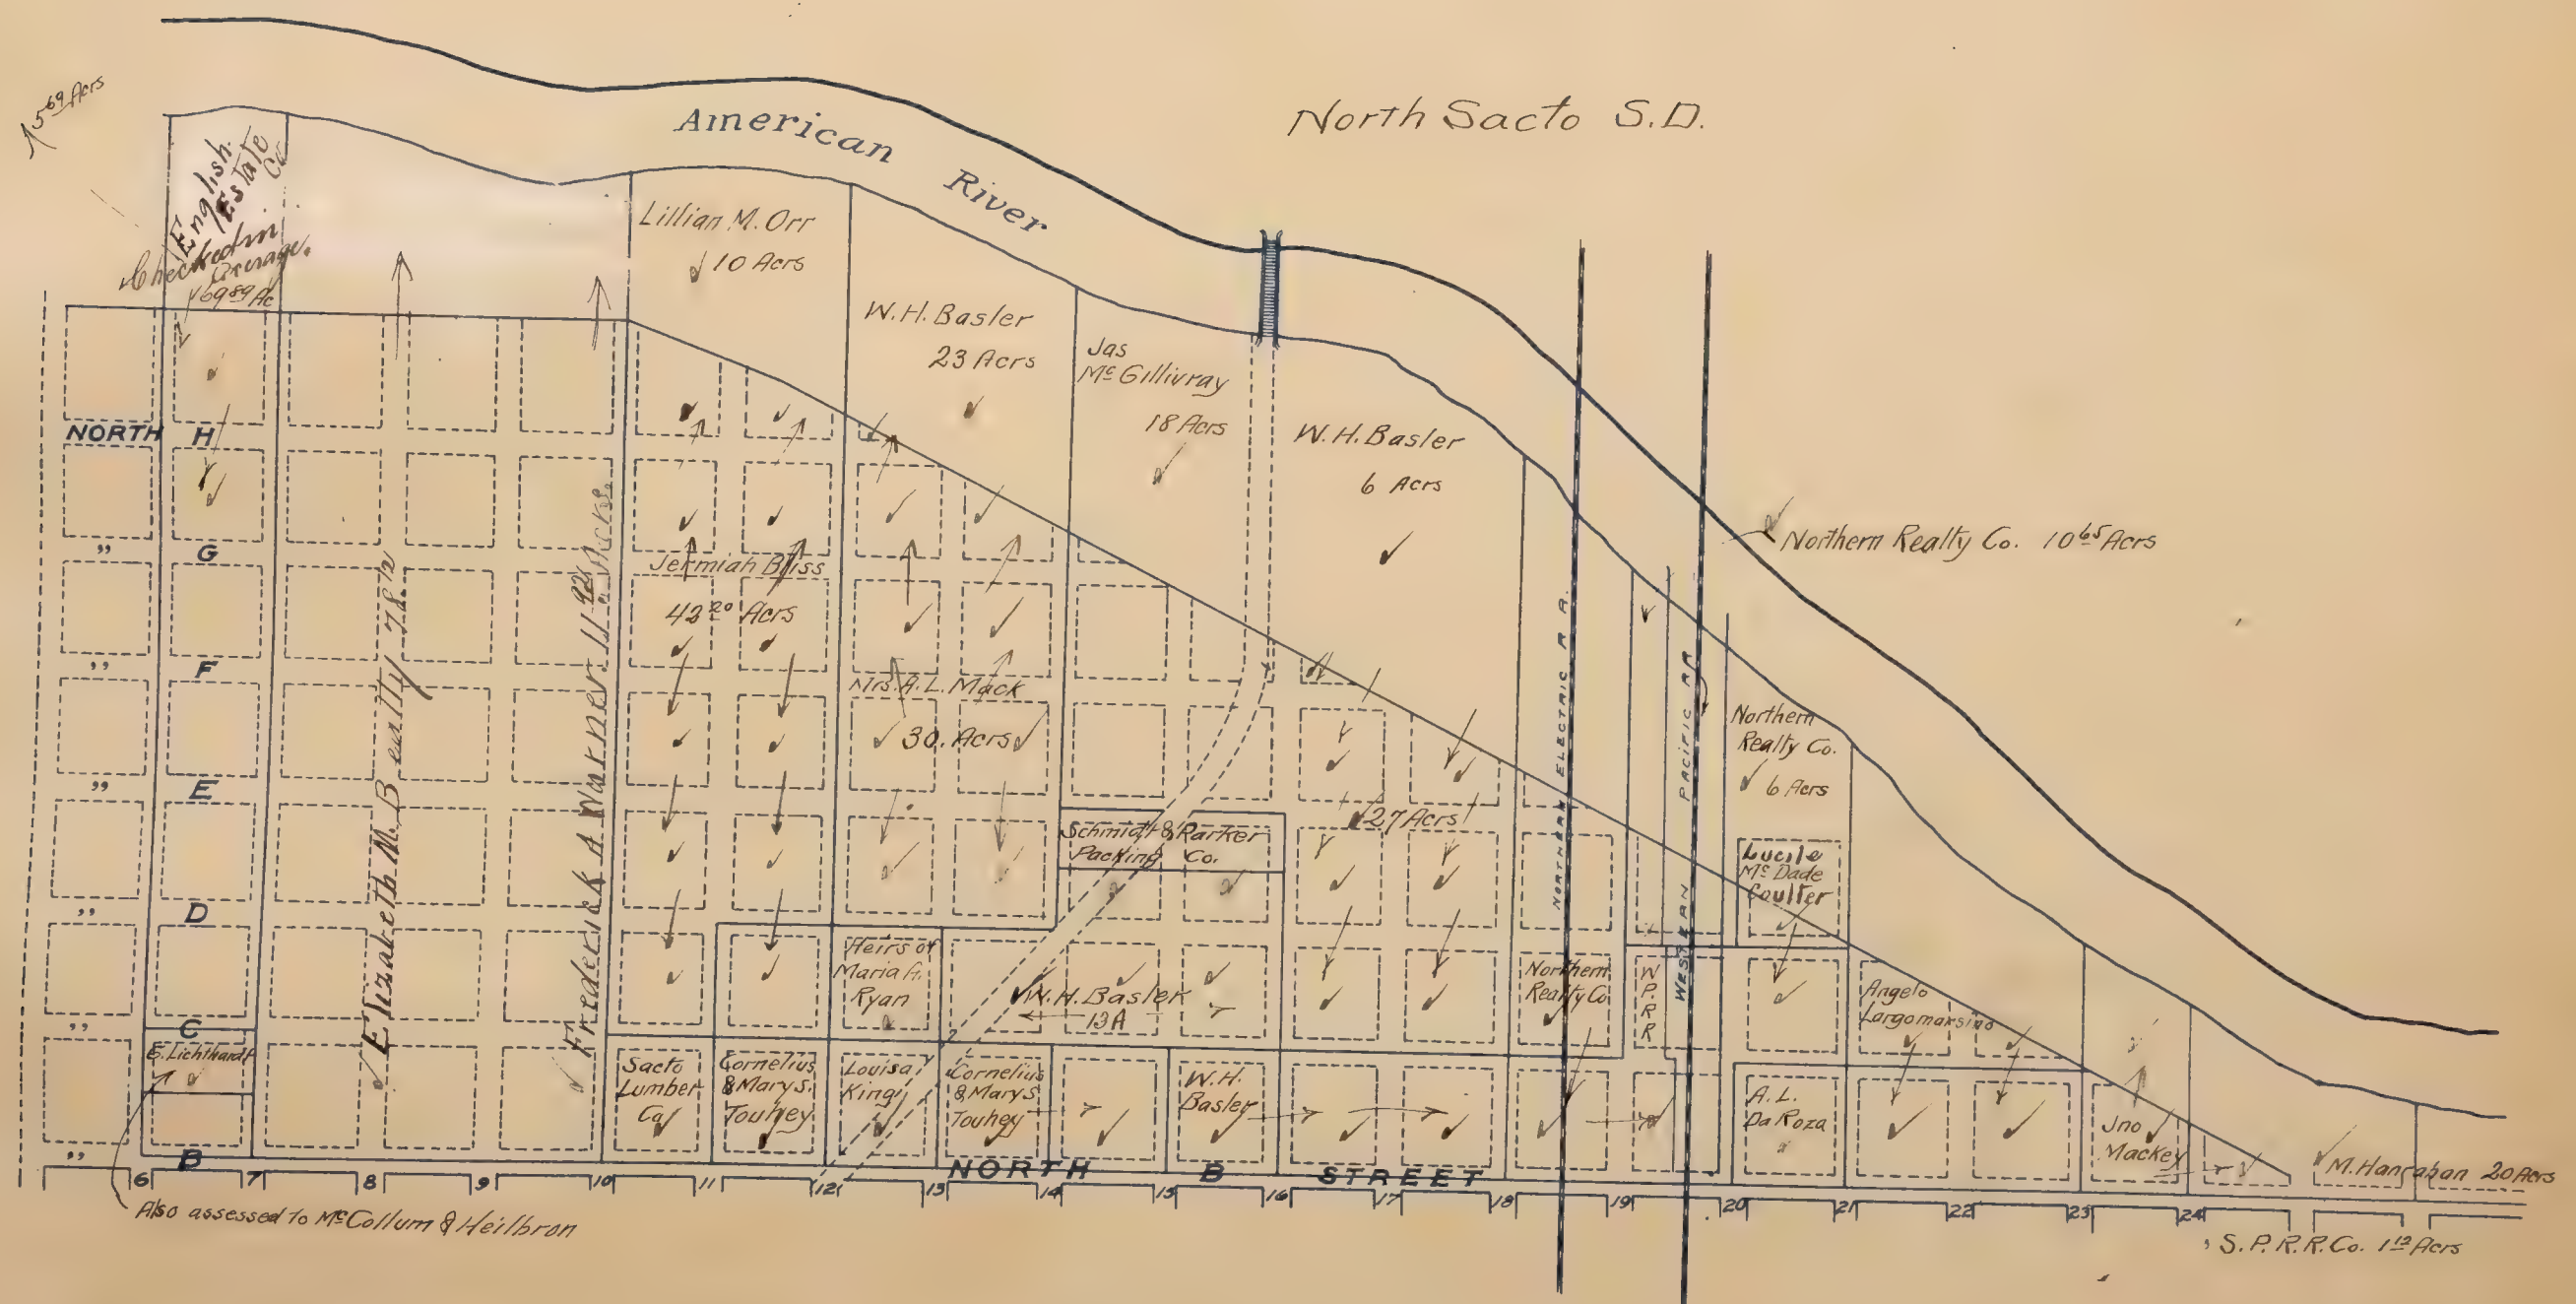 North Sacto S.D.
American River
15 69 Acrs
English
Estate
Co
Checked in
Acerage.
69 89 Ac
Lillian M. Orr
10 Acrs
W.H. Basler
23 Acrs
Jas
Mc Gillivray
18 Acrs
W.H. Basler
6 Acrs
Northern Realty Co. 10 65 Acrs
NORTH H
" G
" F
" E
" D
" C
" B
Elizabeth M. Beatty 78 1/2
Frederick A Warner
Jermiah Bliss
42 20 Acrs
Mrs. A. L. Mack
30. Acrs
27 Acrs
Schmidt & Parker
Packing Co.
NORTHERN ELECTRIC R R.
WESTERN PACIFIC RR
Northern
Realty Co.
6 Acrs
Lucile
Mc Dade
Coulter
Heirs of
Maria A.
Ryan
W.H. Basler
13A
Northern
Realty Co
W
P.
R
R
Angelo
Largomarsino
E. Lichthardt
Sacto
Lumber
Co
Cornelius
& Mary S.
Touhey
Louisa
King
Cornelius
& Mary S
Touhey
W.H.
Basler
A. L.
Da Roza
Jno
Mackey
M. Hanrahan 20 Acrs
NORTH B STREET
6 7 8 9 10 11 12 13 14 15 16 17 18 19 20 21 22 23 24
Also assessed to McCollum & Heilbron
S. P. R. R. Co. 1 12 Acrs